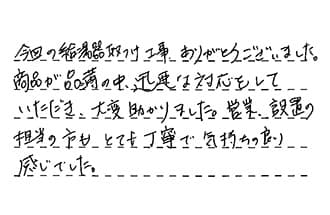 今回の給湯器取付け工事、ありがとうございました。
商品が品薄の中、迅速な対応をして
いただき、大変助かりました。営業、設置の
担当の方も、とても丁寧で気持ちの良い
感じでした。